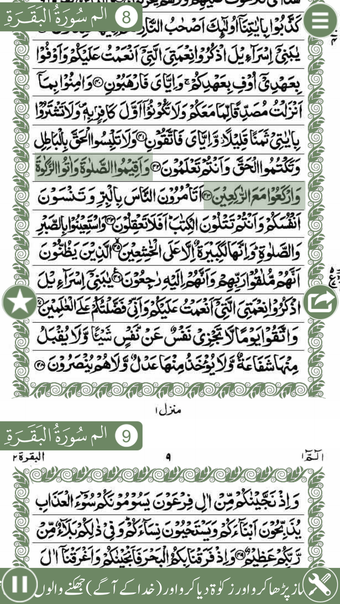 8 الم سورة البقرة
كَذَّبُوا بِاٰيٰتِنَآ اُولٰٓئِكَ اَصْحٰبُ النَّارِ
يٰبَنِيْٓ اِسْرَآءِيْلَ اذْكُرُوْا نِعْمَتِيَ الَّتِيْٓ اَنْعَمْتُ عَلَيْكُمْ وَاَوْفُوْا
بِعَهْدِيْٓ اُوْفِ بِعَهْدِكُمْ ۚ وَاِيَّايَ فَارْهَبُوْنِ وَاٰمِنُوْا بِمَآ
اَنْزَلْتُ مُصَدِّقًا لِّمَا مَعَكُمْ وَلَا تَكُوْنُوْٓا اَوَّلَ كَافِرٍۢ بِهٖ ۪ وَلَا تَشْتَرُوْا
بِاٰيٰتِيْ ثَمَنًا قَلِيْلًا ۡ وَّاِيَّايَ فَاتَّقُوْنِ وَلَا تَلْبِسُوا الْحَقَّ بِالْبَاطِلِ
وَتَكْتُمُوا الْحَقَّ وَاَنْتُمْ تَعْلَمُوْنَ وَاَقِيْمُوا الصَّلٰوةَ وَاٰتُوا الزَّكٰوةَ
وَارْكَعُوْا مَعَ الرّٰكِعِيْنَ اَتَاْمُرُوْنَ النَّاسَ بِالْبِرِّ وَتَنْسَوْنَ
اَنْفُسَكُمْ وَاَنْتُمْ تَتْلُوْنَ الْكِتٰبَ ؕ اَفَلَا تَعْقِلُوْنَ وَاسْتَعِيْنُوْا بِالصَّبْرِ
وَالصَّلٰوةِ ؕ وَاِنَّهَا لَكَبِيْرَةٌ اِلَّا عَلَي الْخٰشِعِيْنَ الَّذِيْنَ يَظُنُّوْنَ
اَنَّهُمْ مُّلٰقُوْا رَبِّهِمْ وَاَنَّهُمْ اِلَيْهِ رٰجِعُوْنَ يٰبَنِيْٓ اِسْرَآءِيْلَ
اذْكُرُوْا نِعْمَتِيَ الَّتِيْٓ اَنْعَمْتُ عَلَيْكُمْ وَاَنِّيْ فَضَّلْتُكُمْ عَلَي الْعٰلَمِيْنَ
وَاتَّقُوْا يَوْمًا لَّا تَجْزِيْ نَفْسٌ عَنْ نَّفْسٍ شَيْئًا وَّلَا يُقْبَلُ
مِنْهَا شَفَاعَةٌ وَّلَا يُؤْخَذُ مِنْهَا عَدْلٌ وَّلَا هُمْ يُنْصَرُوْنَ
منزل ۱
9 الم سورة البقرة
البقرة ۲ ۹ الٓمّٓ ۱
وَاِذْ نَجَّيْنٰكُمْ مِّنْ اٰلِ فِرْعَوْنَ يَسُوْمُوْنَكُمْ سُوْٓءَ الْعَذَابِ
يُذَبِّحُوْنَ اَبْنَآءَكُمْ وَيَسْتَحْيُوْنَ نِسَآءَكُمْ ؕ وَفِيْ ذٰلِكُمْ بَلَآءٌ مِّنْ
رَّبِّكُمْ عَظِيْمٌ وَاِذْ فَرَقْنَا بِكُمُ الْبَحْرَ فَاَنْجَيْنٰكُمْ وَاَغْرَقْنَآ اٰلَ
ماز پڑھا کرو اور زکوٰۃ دیا کرو اور (خدا کے آگے) جھکنے والوں